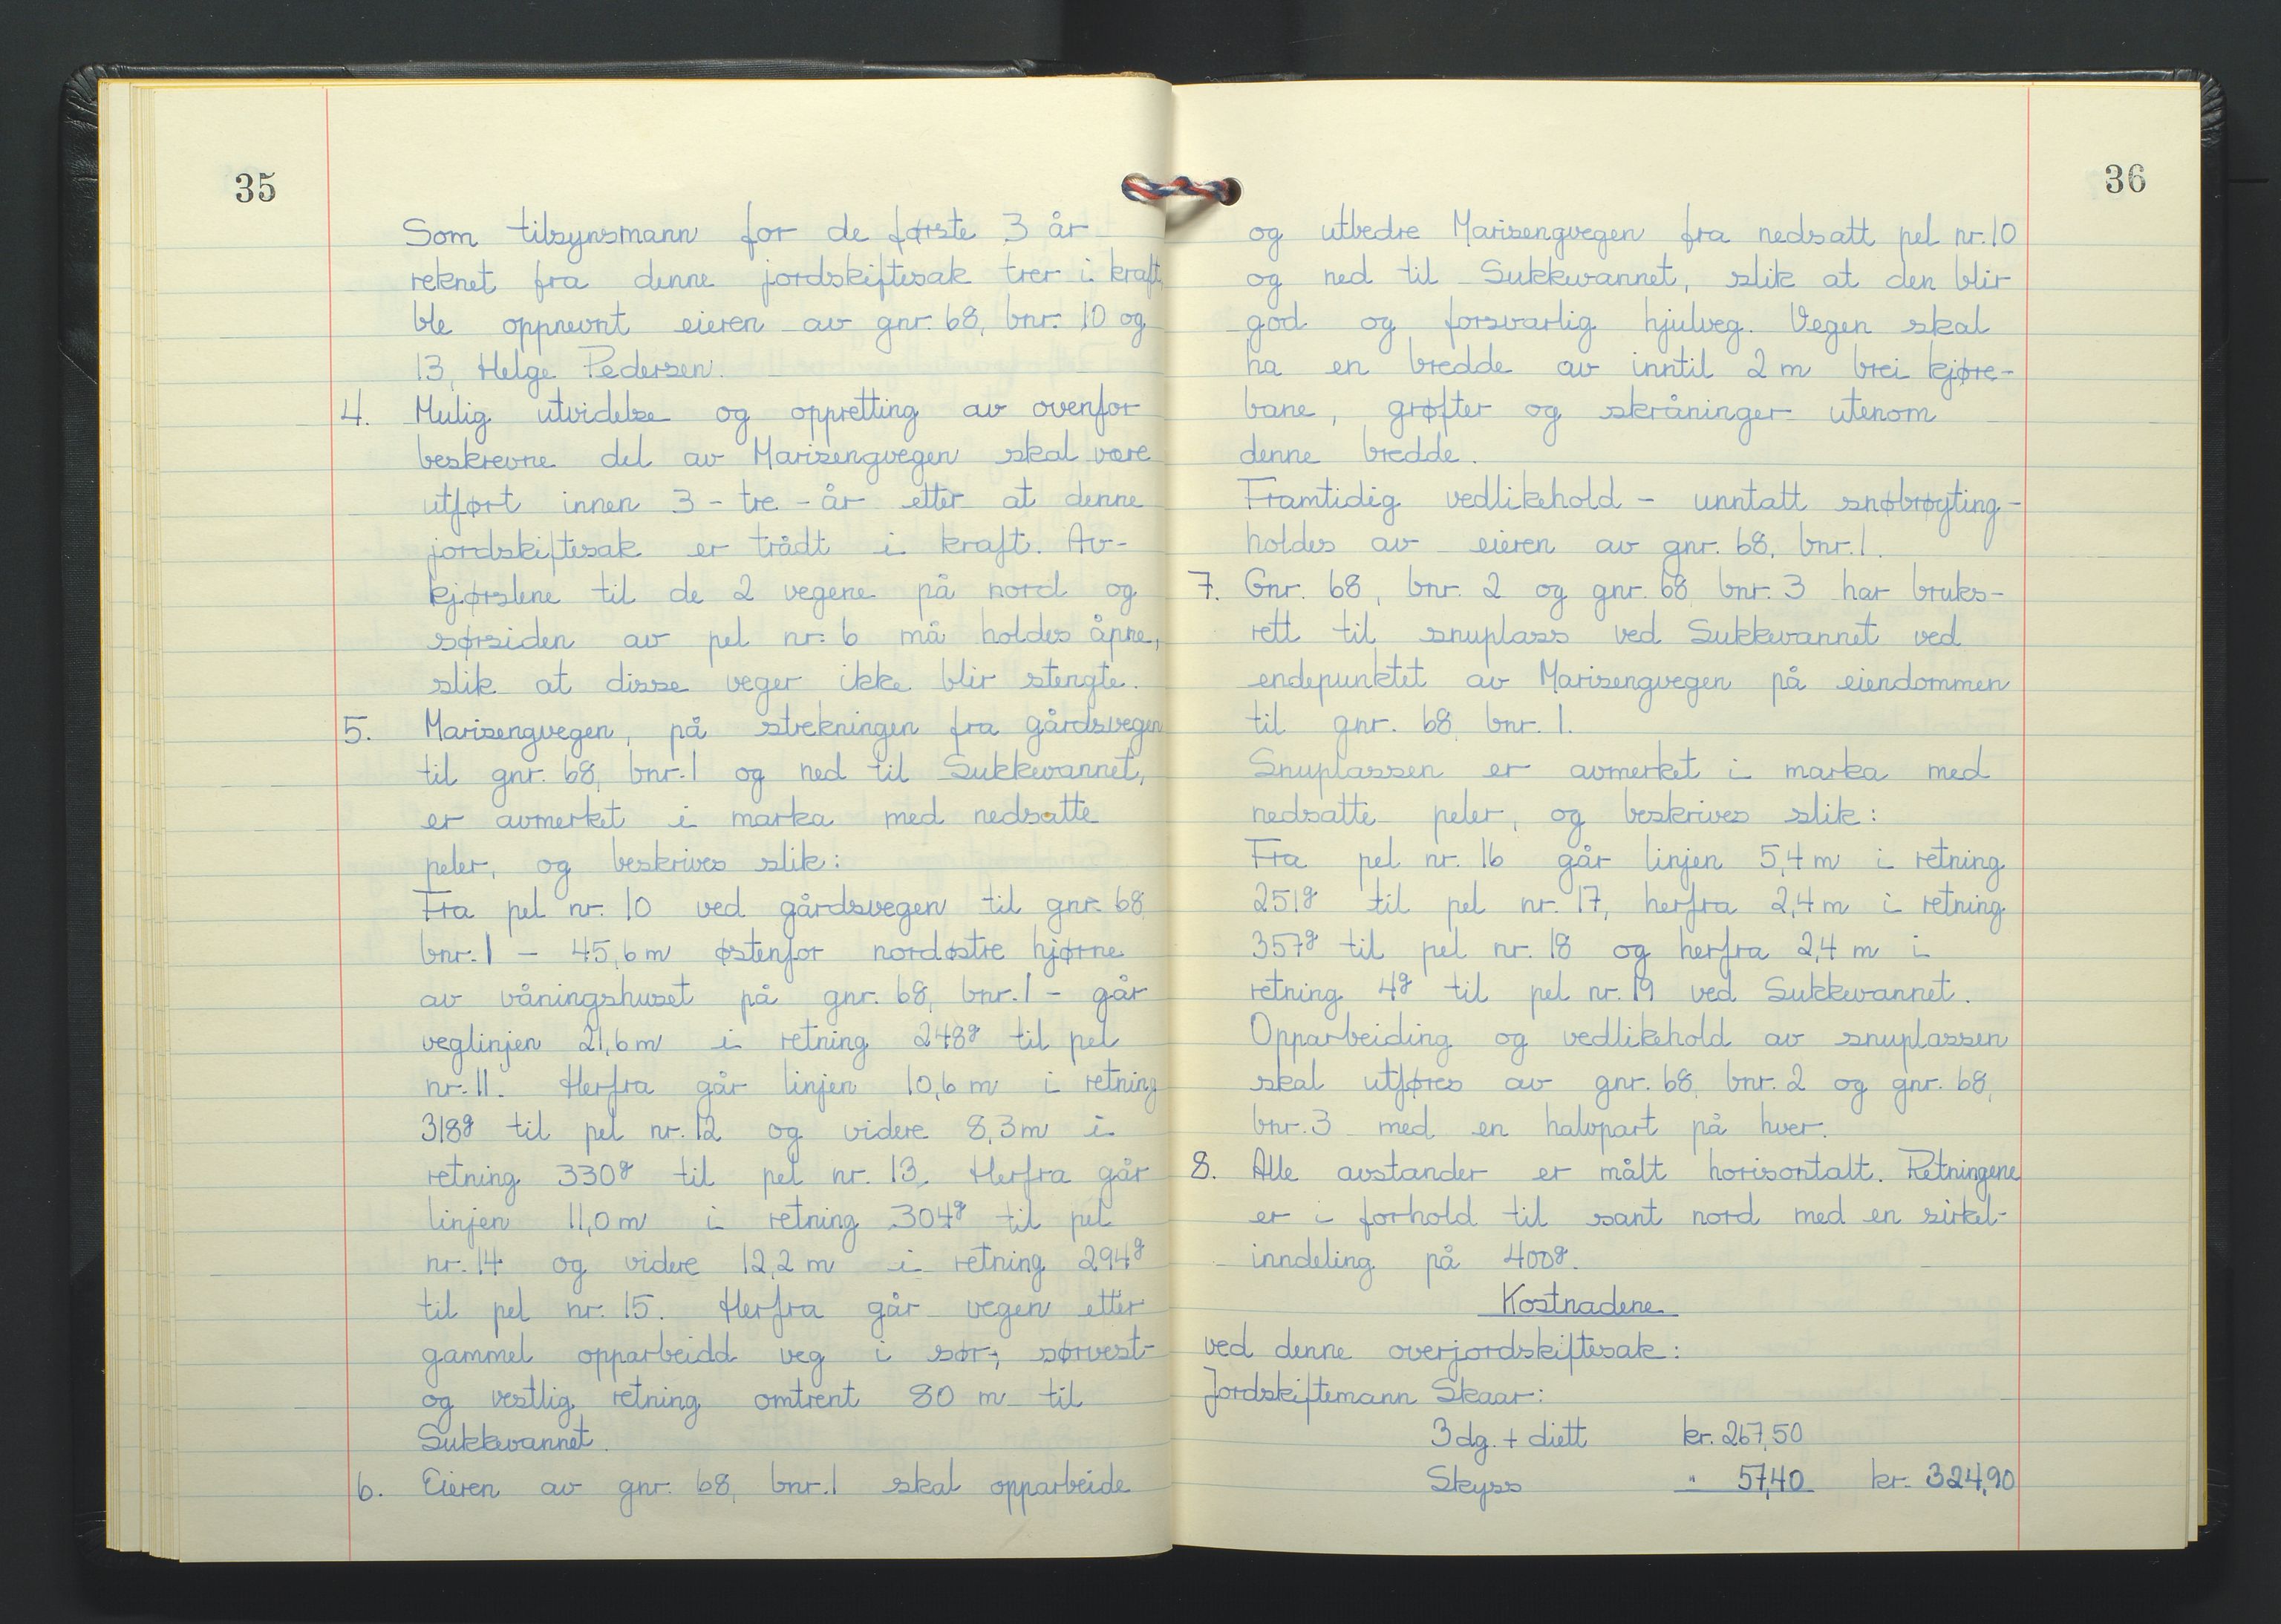 35
Som tilsynsmann for de første 3 år
reknet fra denne jordskiftesak trer i kraft,
ble oppnevnt eieren av gnr. 68, bnr. 10 og
13, Helge Pedersen.
4. Mulig utvidelse og oppretting av ovenfor
beskrevne del av Marisengvegen skal være
utført innen 3 - tre - år etter at denne
jordskiftesak er trådt i kraft. Av-
kjørslene til de 2 vegene på nord og
sørsiden av pel nr. 6 må holdes åpne,
slik at disse veger ikke blir stengte.
5. Marisengvegen, på strekningen fra gårdsvegen
til gnr. 68, bnr. 1 og ned til Sukkevannet,
er avmerket i marka med nedsatte
peler, og beskrives slik:
Fra pel nr. 10 ved gårdsvegen til gnr. 68,
bnr. 1 - 45,6 m østenfor nordøstre hjørne
av våningshuset på gnr. 68, bnr. 1 - går
veglinjen 21,6 m i retning 248g til pel
nr. 11. Herfra går linjen 10,6 m i retning
318g til pel nr. 12 og videre 8,3 m i
retning 330g til pel nr. 13. Herfra går
linjen 11,0 m i retning 304g til pel
nr. 14 og videre 12,2 m i retning 294g
til pel nr. 15. Herfra går vegen etter
gammel opparbeidd veg i sør-, sørvest-
og vestlig retning omtrent 80 m til
Sukkevannet.
6. Eieren av gnr. 68, bnr. 1 skal opparbeide
36
og utbedre Marisengvegen fra nedsatt pel nr. 10
og ned til Sukkevannet, slik at den blir
god og forsvarlig hjulveg. Vegen skal
ha en bredde av inntil 2 m brei kjøre-
bane, grøfter og skråninger utenom
denne bredde.
Framtidig vedlikehold - unntatt snøbrøyting -
holdes av eieren av gnr. 68, bnr. 1.
7. Gnr. 68, bnr. 2 og gnr. 68 bnr. 3 har bruks-
rett til snuplass ved Sukkevannet ved
endepunktet av Marisengvegen på eiendommen
til gnr. 68, bnr. 1.
Snuplassen er avmerket i marka med
nedsatte peler, og beskrives slik:
Fra pel nr. 16 går linjen 5,4 m i retning
251g til pel nr. 17, herfra 2,4 m i retning
357g til pel nr. 18 og herfra 2,4 m i
retning 4g til pel nr. 19 ved Sukkevannet.
Opparbeiding og vedlikehold av snuplassen
skal utføres av gnr. 68, bnr. 2 og gnr. 68,
bnr. 3 med en halvpart på hver.
8. Alle avstander er målt horisontalt. Retningene
er i forhold til sant nord med en sirkel-
inndeling på 400g.
Kostnadene
ved denne overjordskiftesak:
Jordskiftemann Skaar:
3 dg. + diett kr. 267,50
Skyss " 57,40 kr. 324,90